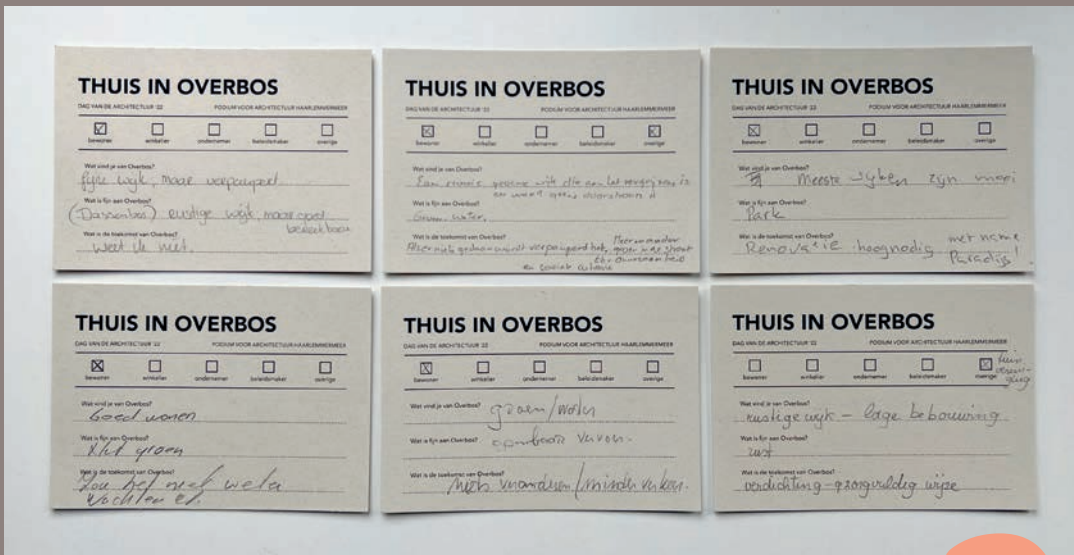 THUIS IN OVERBOS
DAG VAN DE ARCHITECTUUR '22 PODIUM VOOR ARCHITECTUUR HAARLEMMERMEER
bewoner winkelier ondernemer beleidsmaker overige
Wat vind je van Overbos?
fijne wijk, maar verpauperd
Wat is fijn aan Overbos?
(Dassenbos) rustige wijk, maar goed
bereikbaar
Wat is de toekomst van Overbos?
weet ik niet.
THUIS IN OVERBOS
DAG VAN DE ARCHITECTUUR '22 PODIUM VOOR ARCHITECTUUR HAARLEMMERMEER
bewoner winkelier ondernemer beleidsmaker overige
Wat vind je van Overbos?
Een mooie groene wijk die aan het vergrijzen is
en
Wat is fijn aan Overbos?
Groen, water.
Wat is de toekomst van Overbos?
Als er niets gedaan wordt verpaupert het,
en sociale cohesie
THUIS IN OVERBOS
DAG VAN DE ARCHITECTUUR '22 PODIUM VOOR ARCHITECTUUR HAARLEMMERMEER
bewoner winkelier ondernemer beleidsmaker overige
Wat vind je van Overbos?
Meeste wijken zijn mooi
Wat is fijn aan Overbos?
Park
Wat is de toekomst van Overbos?
Renovatie hoognodig met name
Paradijs!
THUIS IN OVERBOS
DAG VAN DE ARCHITECTUUR '22 PODIUM VOOR ARCHITECTUUR HAARLEMMERMEER
bewoner winkelier ondernemer beleidsmaker overige
Wat vind je van Overbos?
Goed wonen
Wat is fijn aan Overbos?
Het groen
Wat is de toekomst van Overbos?
Zou het niet weten
THUIS IN OVERBOS
DAG VAN DE ARCHITECTUUR '22 PODIUM VOOR ARCHITECTUUR HAARLEMMERMEER
bewoner winkelier ondernemer beleidsmaker overige
Wat vind je van Overbos?
groen/water
Wat is fijn aan Overbos?
openbaar vervoer.
Wat is de toekomst van Overbos?
niets veranderen/minder
THUIS IN OVERBOS
DAG VAN DE ARCHITECTUUR '22 PODIUM VOOR ARCHITECTUUR HAARLEMMERMEER
bewoner winkelier ondernemer beleidsmaker overige
Wat vind je van Overbos?
rustige wijk - lage bebouwing
Wat is fijn aan Overbos?
rust
Wat is de toekomst van Overbos?
verdichting - zorgvuldig wijze